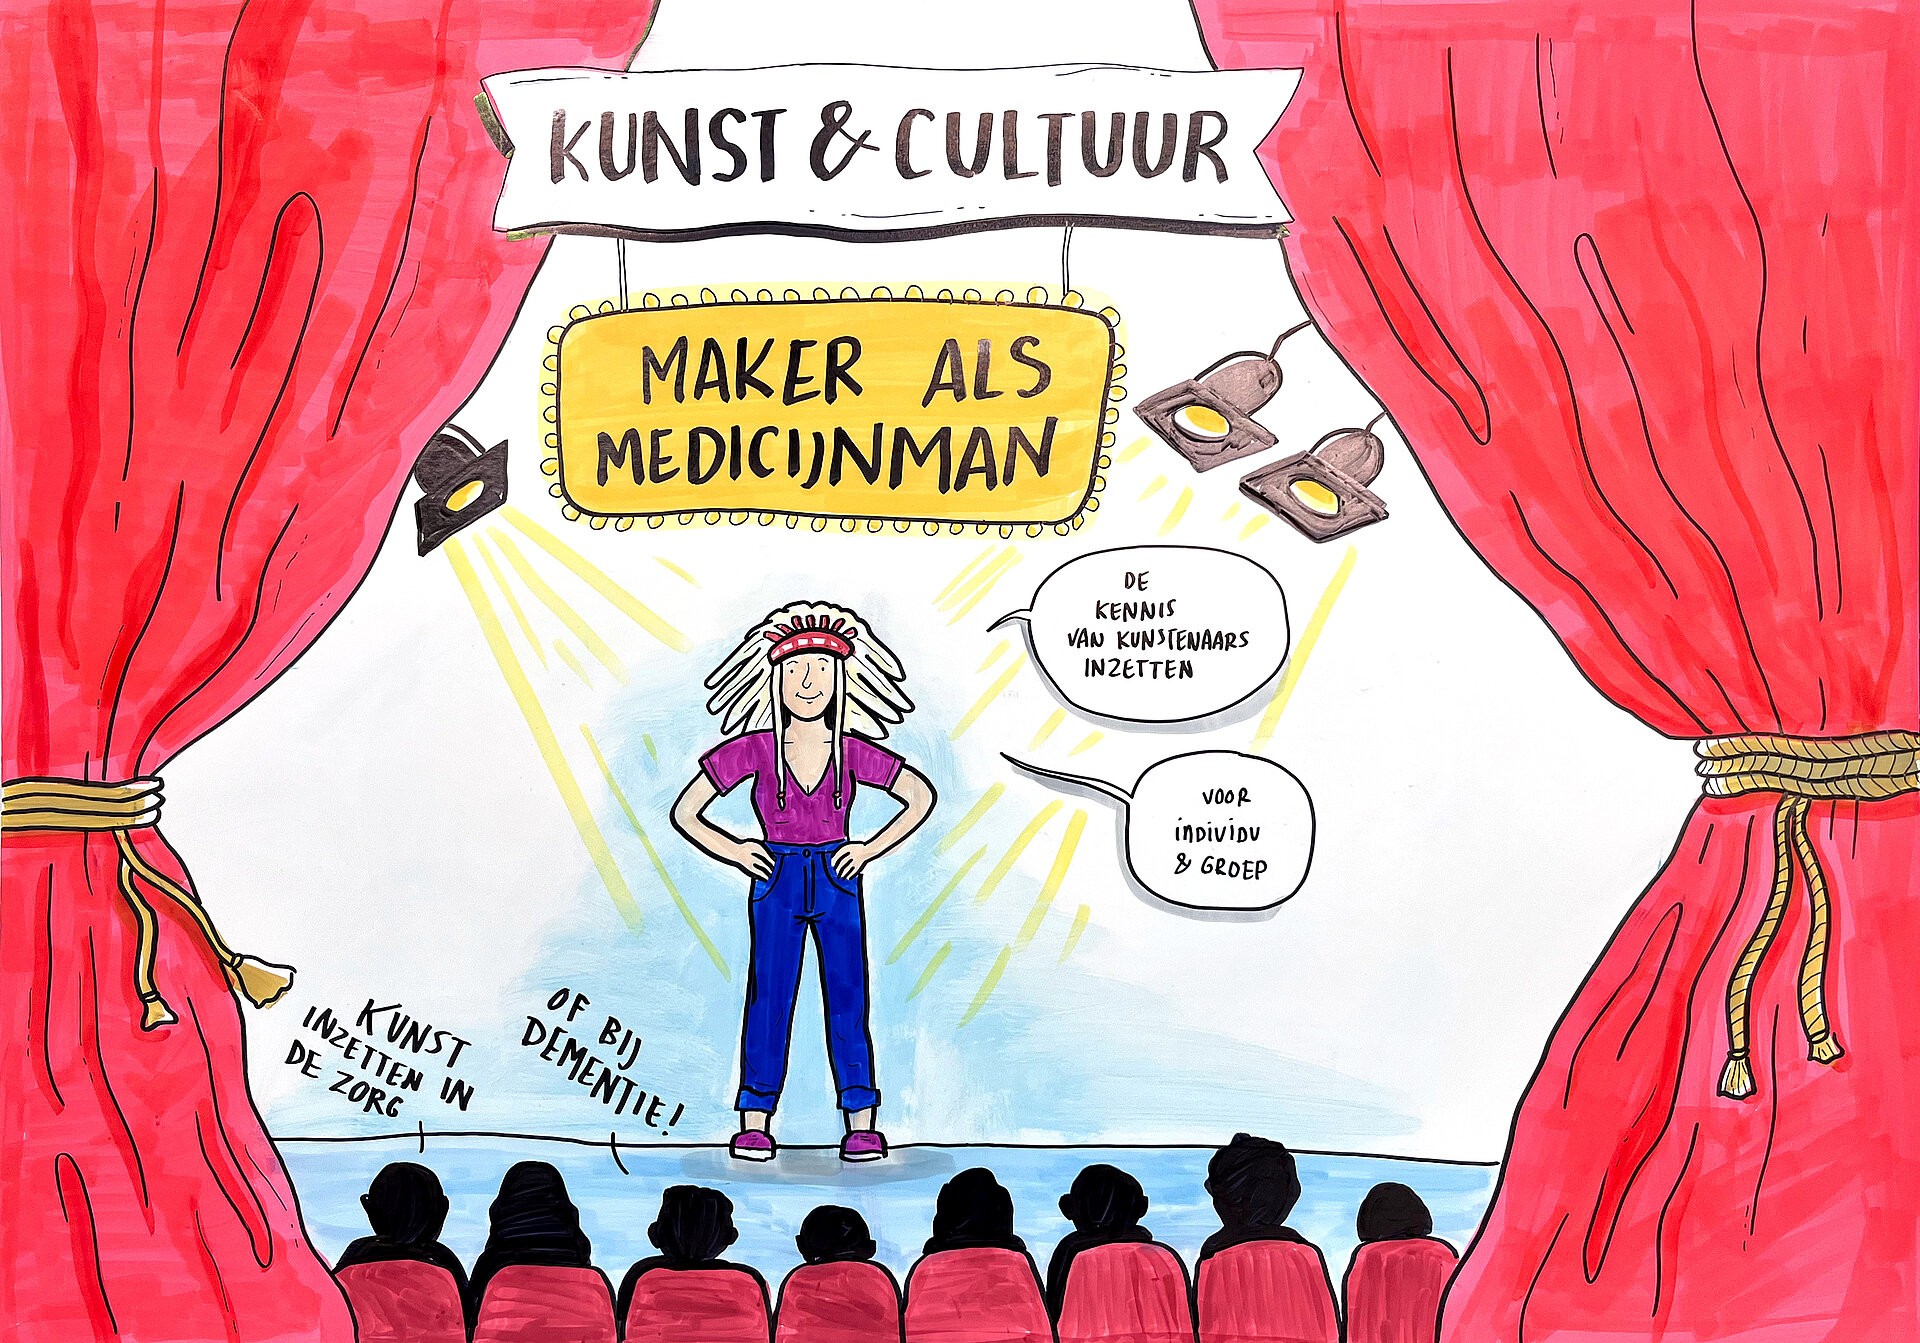 KUNST & CULTUUR
MAKER ALS
MEDICIJNMAN
DE
KENNIS
VAN KUNSTENAARS
INZETTEN
VOOR
INDIVIDU
& GROEP
KUNST
INZETTEN IN
DE ZORG
OF BIJ
DEMENTIE!